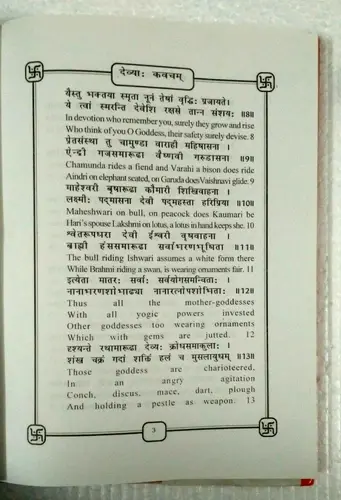 देव्याः कवचम्
यैस्तु भक्तया स्मृता नूनं तेषां वृद्धिः प्रजायते।
ये त्वां स्मरन्ति देवेशि रक्षसे तान्न संशयः ॥8॥
In devotion who remember you, surely they grow and rise
Who think of you O Goddess, their safety surely devise. 8
प्रेतसंस्था तु चामुण्डा वाराही महिषासना ।
ऐन्द्री गजसमारूढा वैष्णवी गरुडासना ॥9॥
Chamunda rides a fiend and Varahi a bison does ride
Aindri on elephant seated, on Garuda doesVaishnavi glide. 9
माहेश्वरी वृषारूढा कौमारी शिखिवाहना ।
लक्ष्मीः पद्मासना देवी पद्महस्ता हरिप्रिया ॥10॥
Maheshwari on bull, on peacock does Kaumari be
Hari's spouse Lakshmi on lotus, a lotus in hand keeps she. 10
श्वेतरूपधरा देवी ईश्वरी वृषवाहना ।
ब्राह्मी हंससमारूढा सर्वाभरणभूषिता ॥11॥
The bull riding Ishwari assumes a white form there
While Brahmi riding a swan, is wearing ornaments fair. 11
इत्येता मातरः सर्वाः सर्वयोगसमन्विताः ।
नानाभरणशोभाढ्या नानारत्नोपशोभिताः ॥12॥
Thus all the mother-goddesses
With all yogic powers invested
Other goddesses too wearing ornaments
Which with gems are jutted. 12
दृश्यन्ते रथामारूढा देव्यः क्रोधसमाकुलाः ।
शंख चक्रं गदां शक्तिं हलं च मुसलायुधम् ॥13॥
Those goddess are charioteered,
In an angry agitation
Conch, discus, mace, dart, plough
And holding a pestle as weapon. 13
3